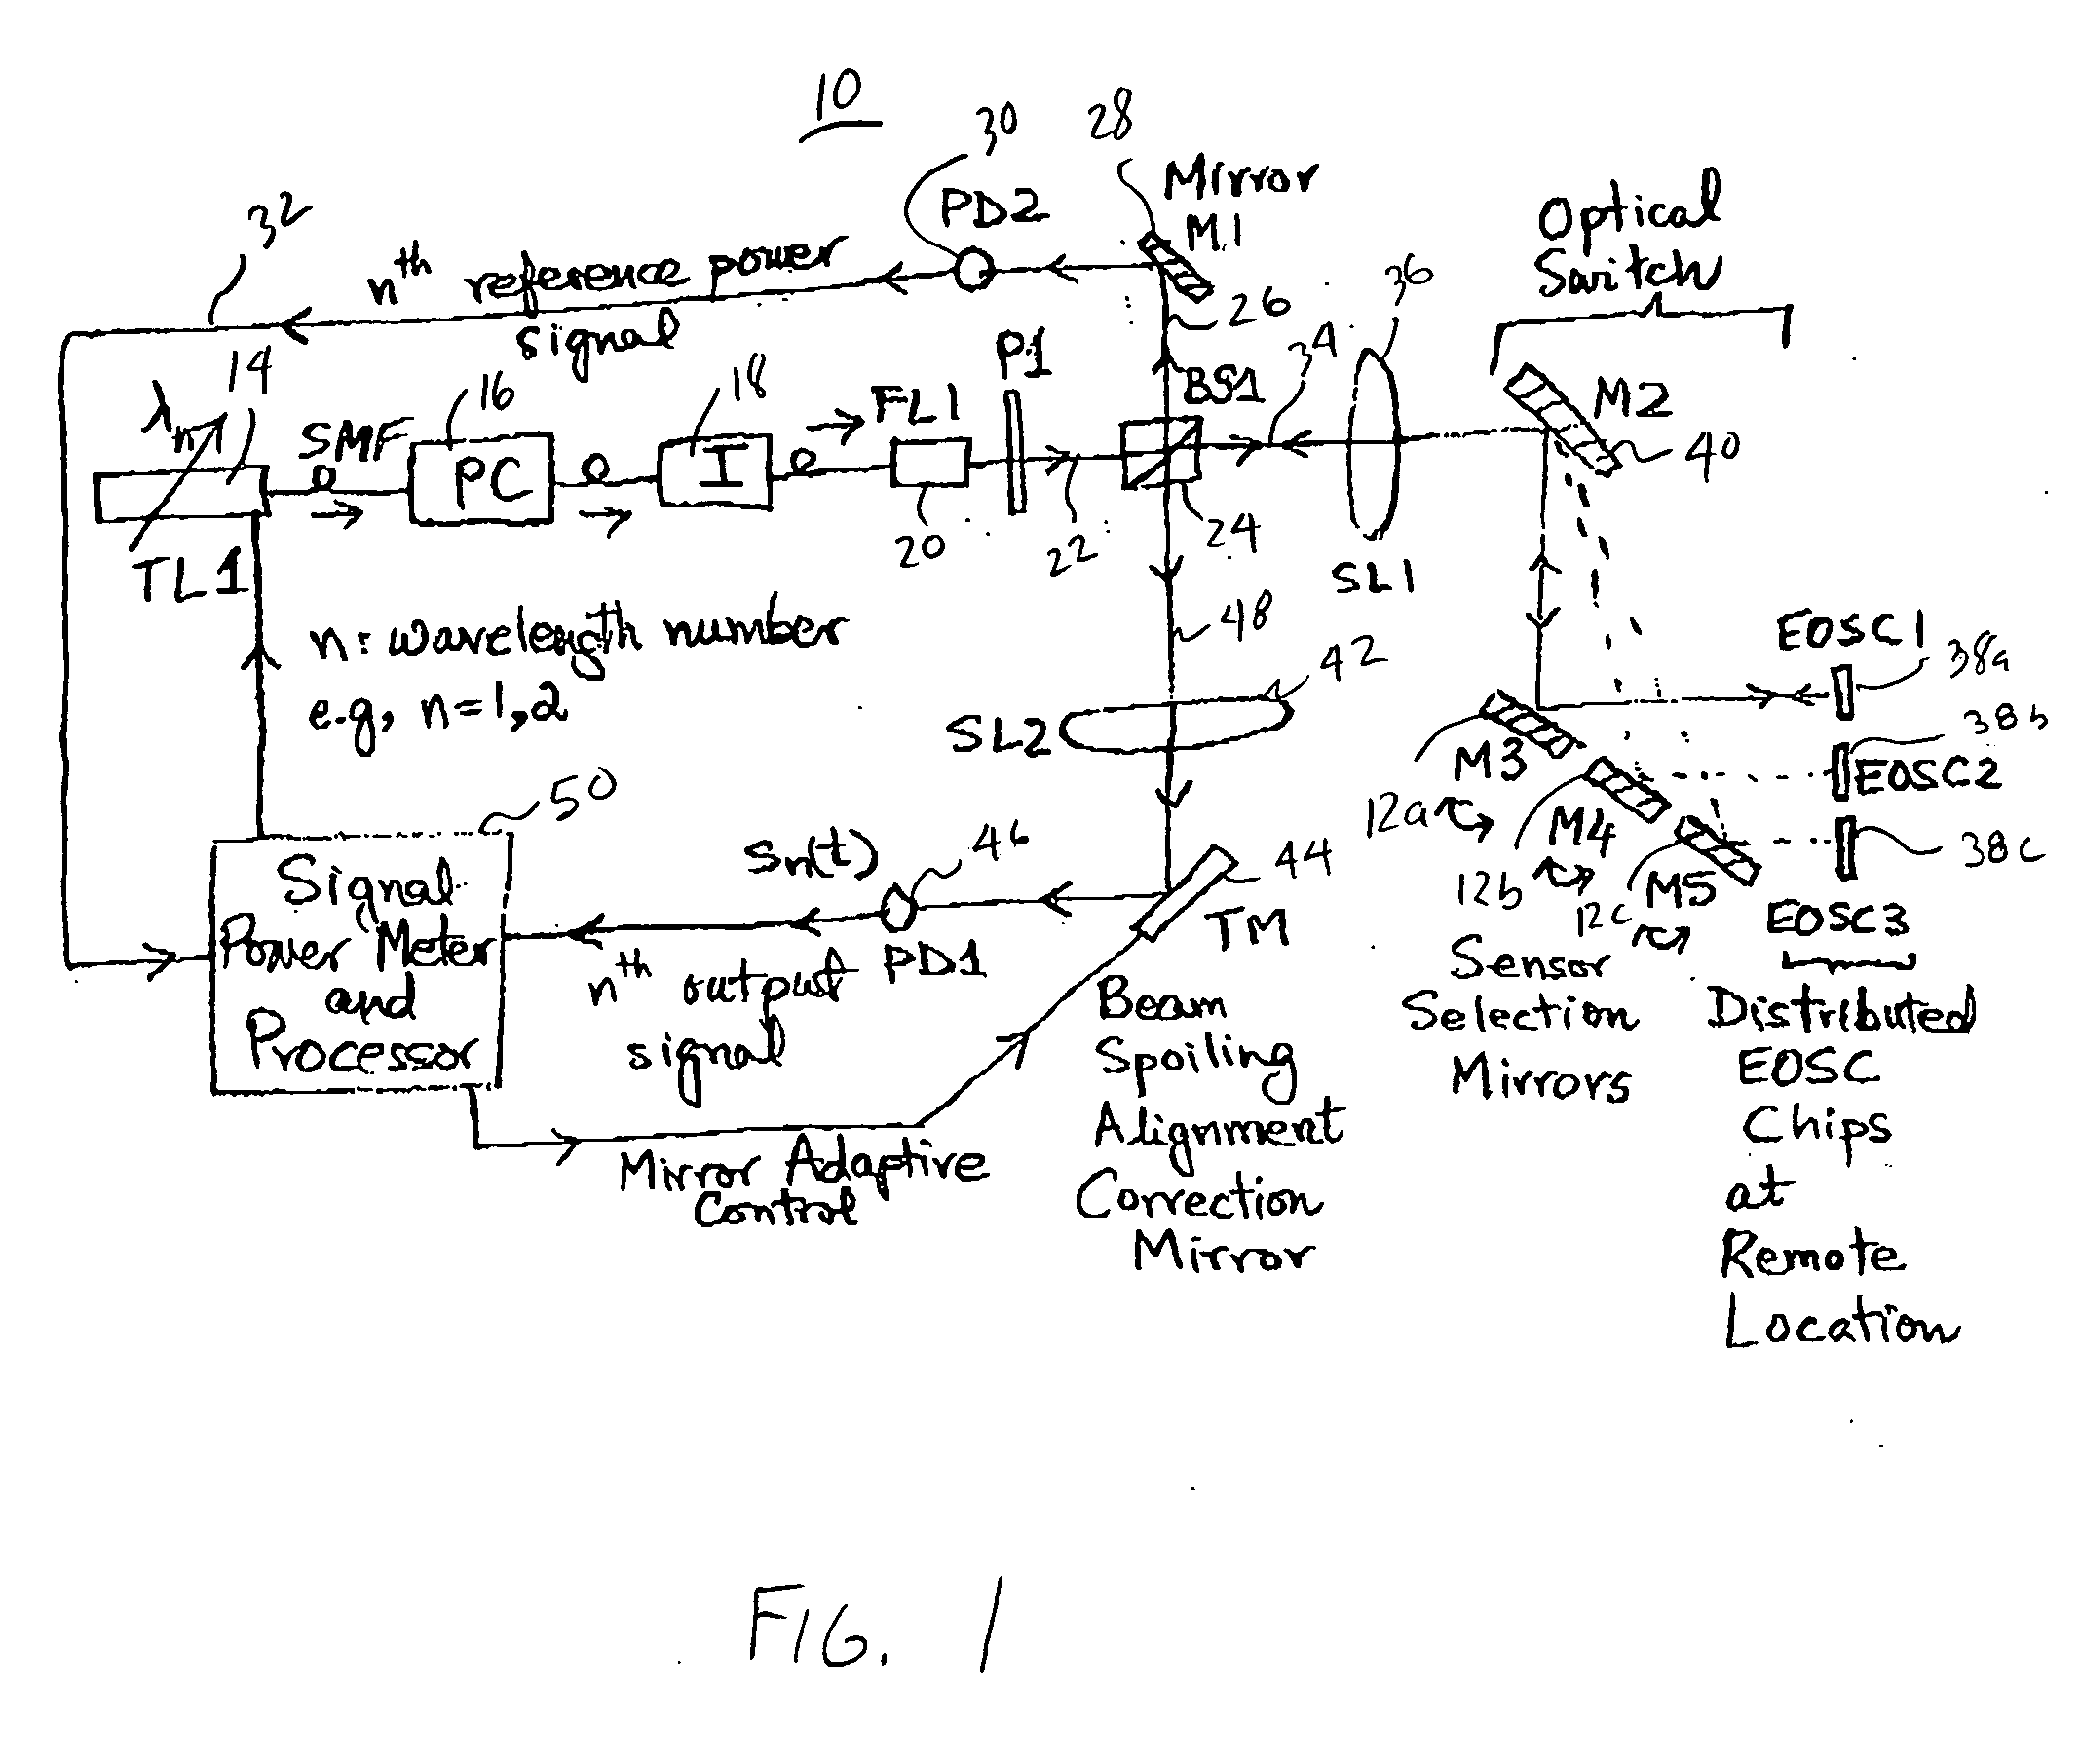 10
30
28
PD2
Mirror
M1
Optical
Switch
32
nth reference power
signal
26
36
34
14
λn
SMF
16
PC
18
I
FL1
P1
BS1
M2
40
TL1
20
22
24
SL1
48
42
n: wavelength number
e.g, n=1,2
SL2
EOSC1
38a
38b
EOSC2
38c
EOSC3
M3
12a
M4
12b
M5
12c
50
Signal
Power Meter
and
Processor
Sn(t)
46
PD1
nth output
signal
44
TM
Beam
Spoiling
Alignment
Correction
Mirror
Sensor
Selection
Mirrors
Distributed
EOSC
Chips
at
Remote
Location
Mirror Adaptive
Control
FIG. 1